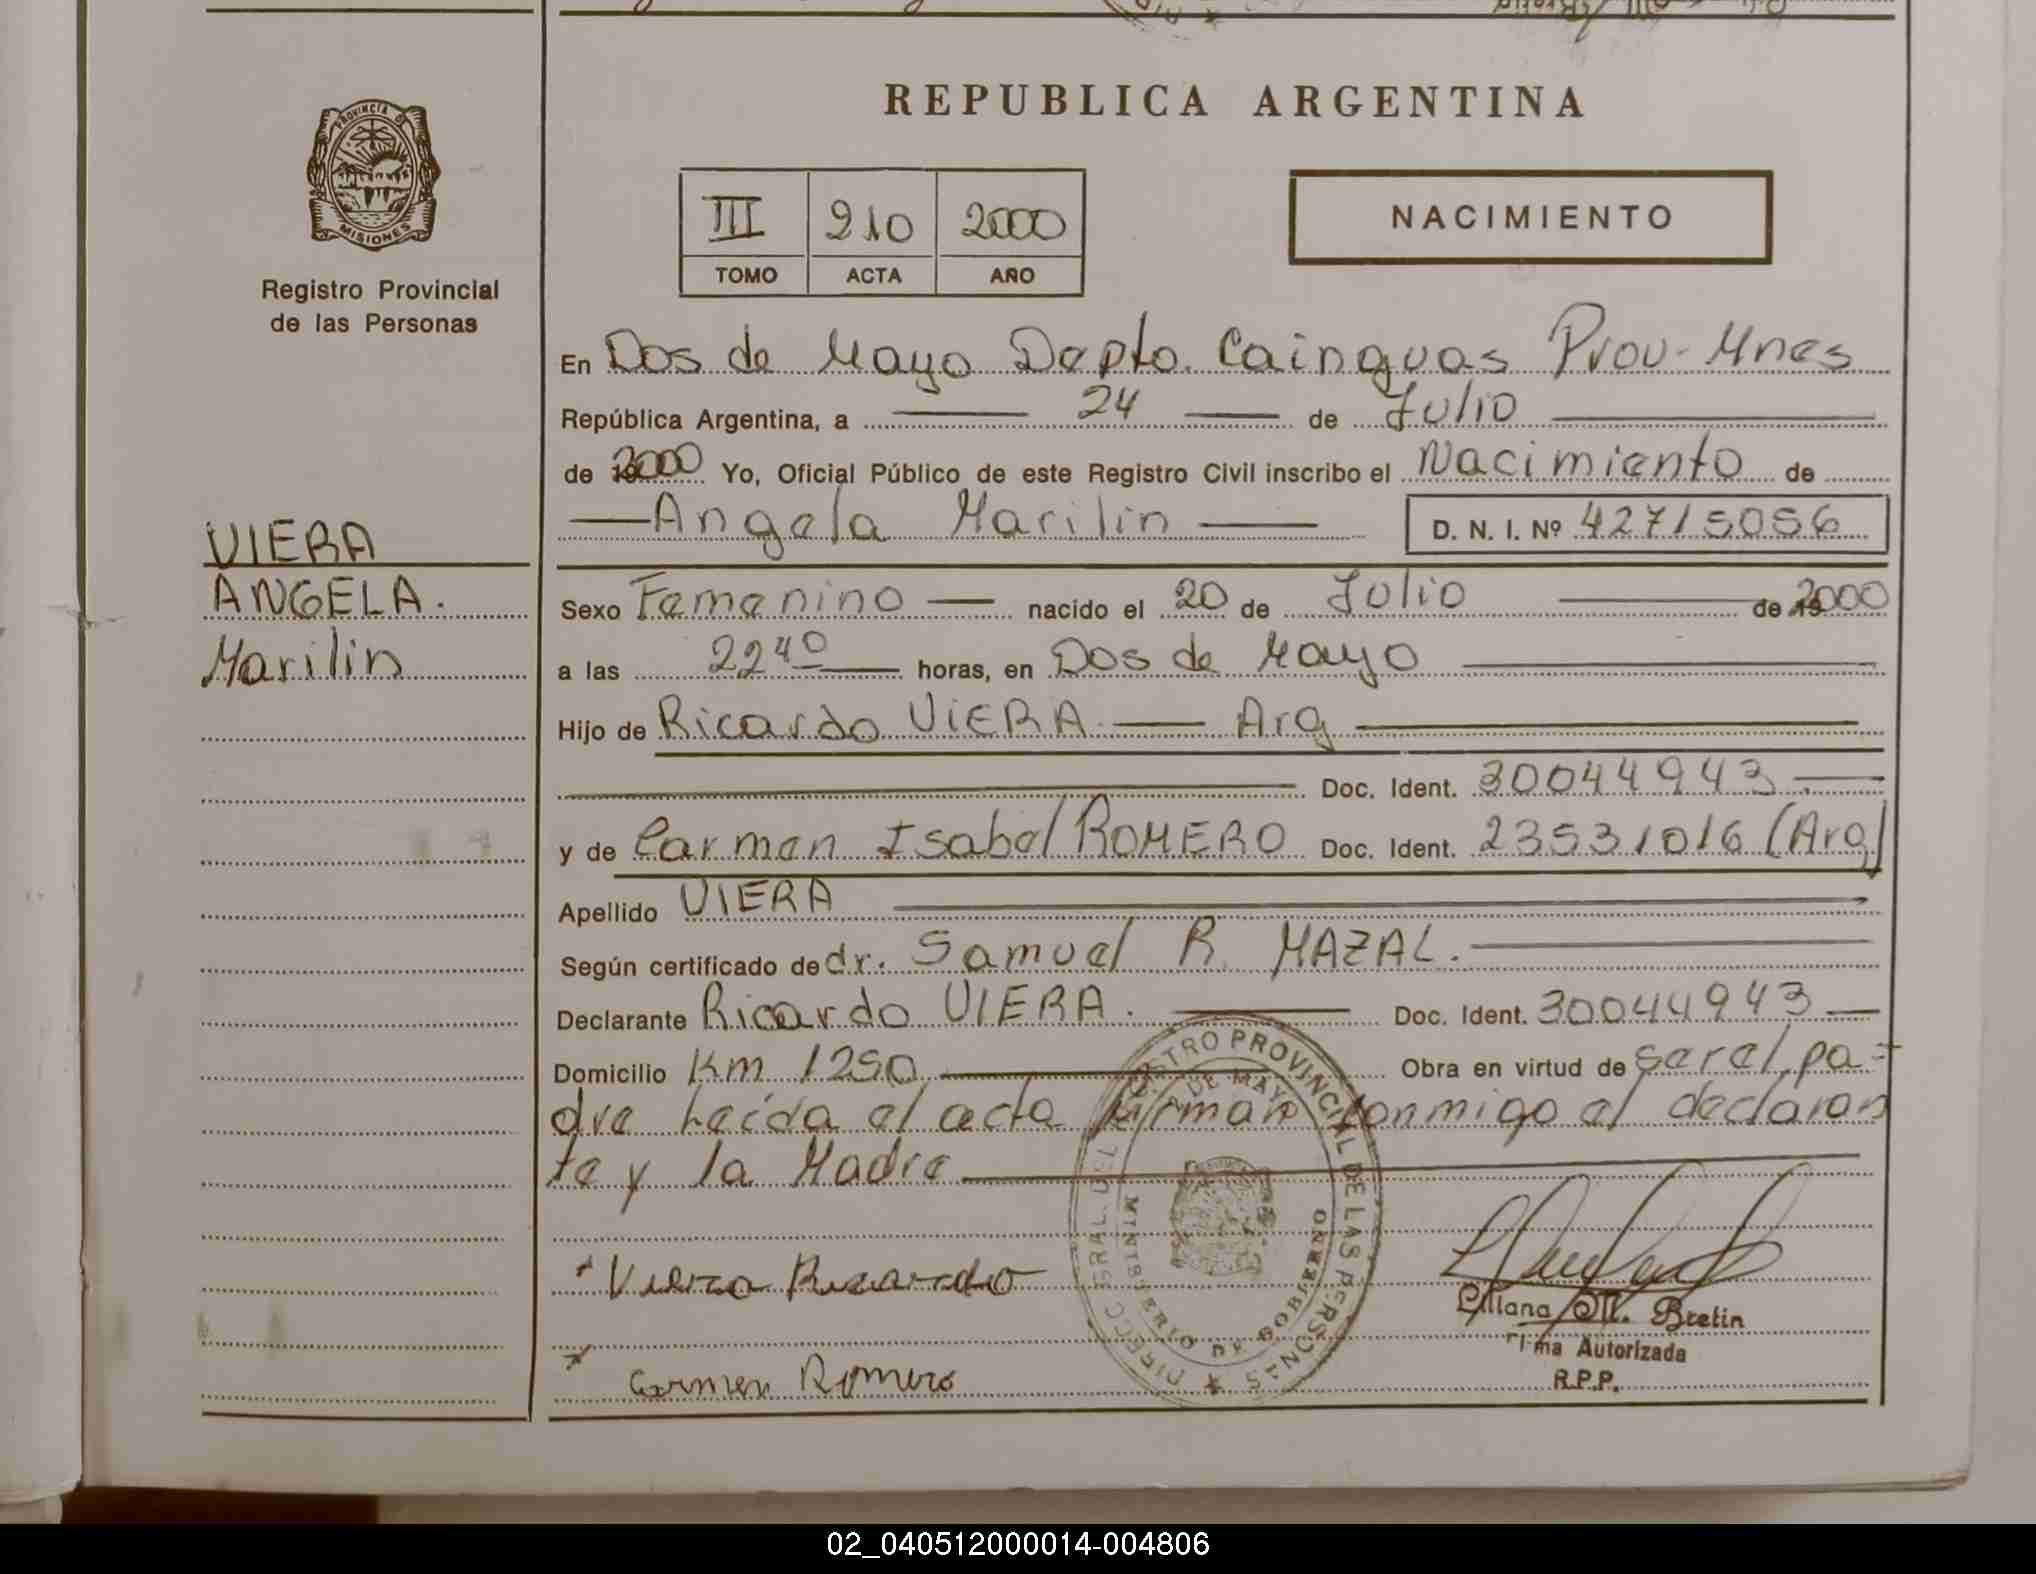 REPUBLICA ARGENTINA
PROVINCIA D
MISIONES
Registro Provincial
de las Personas
III 210 2000
TOMO ACTA AÑO
NACIMIENTO
En Dos de Mayo Depto. Cainguas Prov-Mnes
República Argentina, a 24 de Julio
de 2000 Yo, Oficial Público de este Registro Civil inscribo el Nacimiento de
Angela Marilin D. N. I. Nº 42715056
VIERA
ANGELA.
Marilin
Sexo Femenino nacido el 20 de Julio de 2000
a las 22 40 horas, en Dos de Mayo
Hijo de Ricardo VIERA Arg
Doc. Ident. 30044943
y de Carmen Isabel ROMERO Doc. Ident. 23531016 (Arg)
Apellido VIERA
Según certificado de dr. Samuel R. MAZAL.
Declarante Ricardo VIERA. Doc. Ident. 30044943
Domicilio Km 1250 Obra en virtud de ser el pa-
dre Leída el acta firman conmigo el declaran
te y la Madre
REGISTRO PROVINCIAL DE LAS PERSONAS
DE MAYO
MINISTERIO DE GOBIERNO
Viera Ricardo
Carmen Romero
Liliana M. Bretin
Firma Autorizada
R.P.P.
02_040512000014-004806